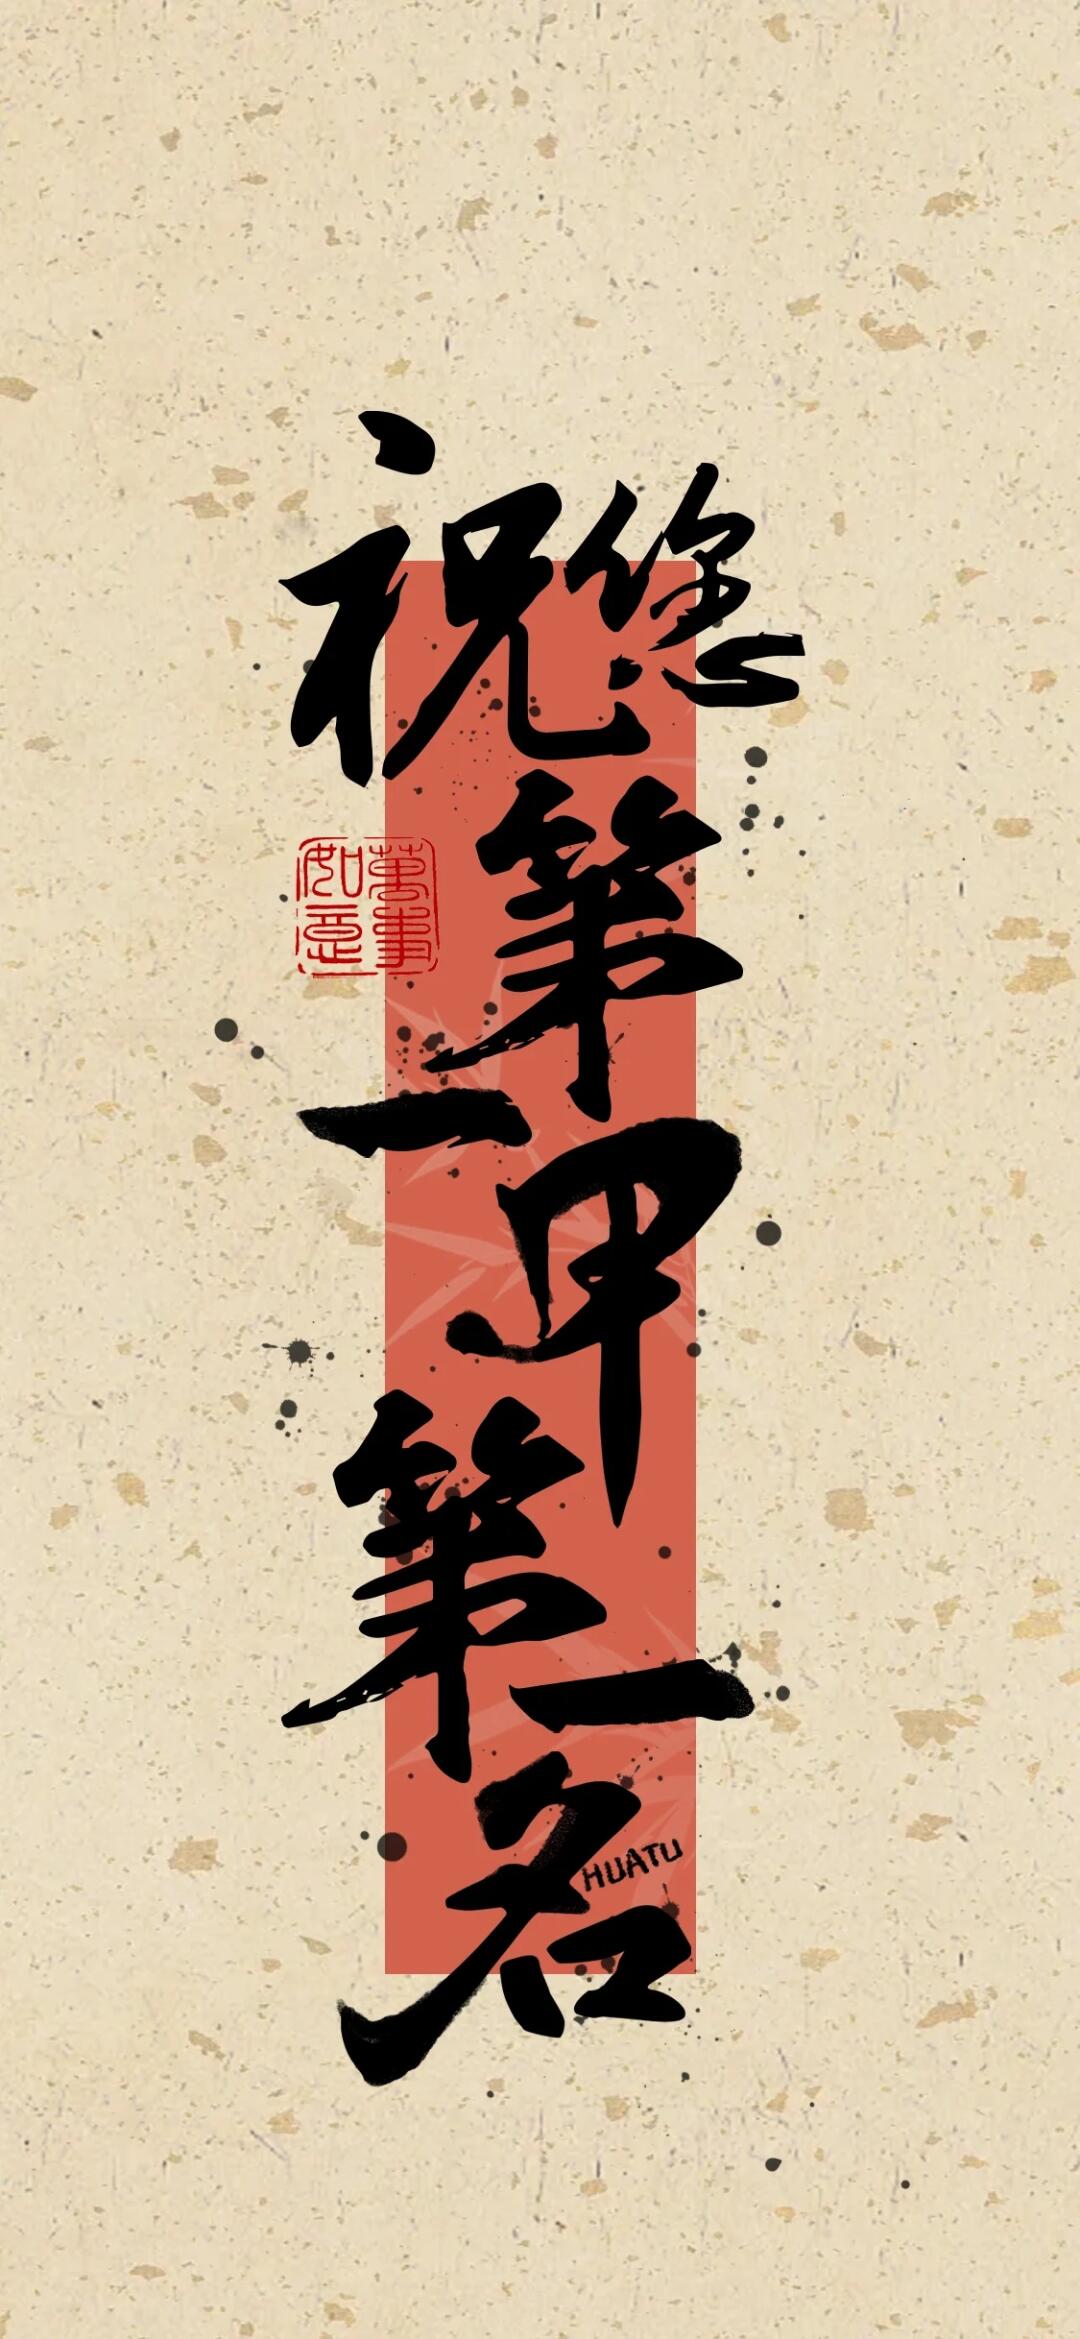 祝您
第一甲
第一名
萬事
如意
HUATU